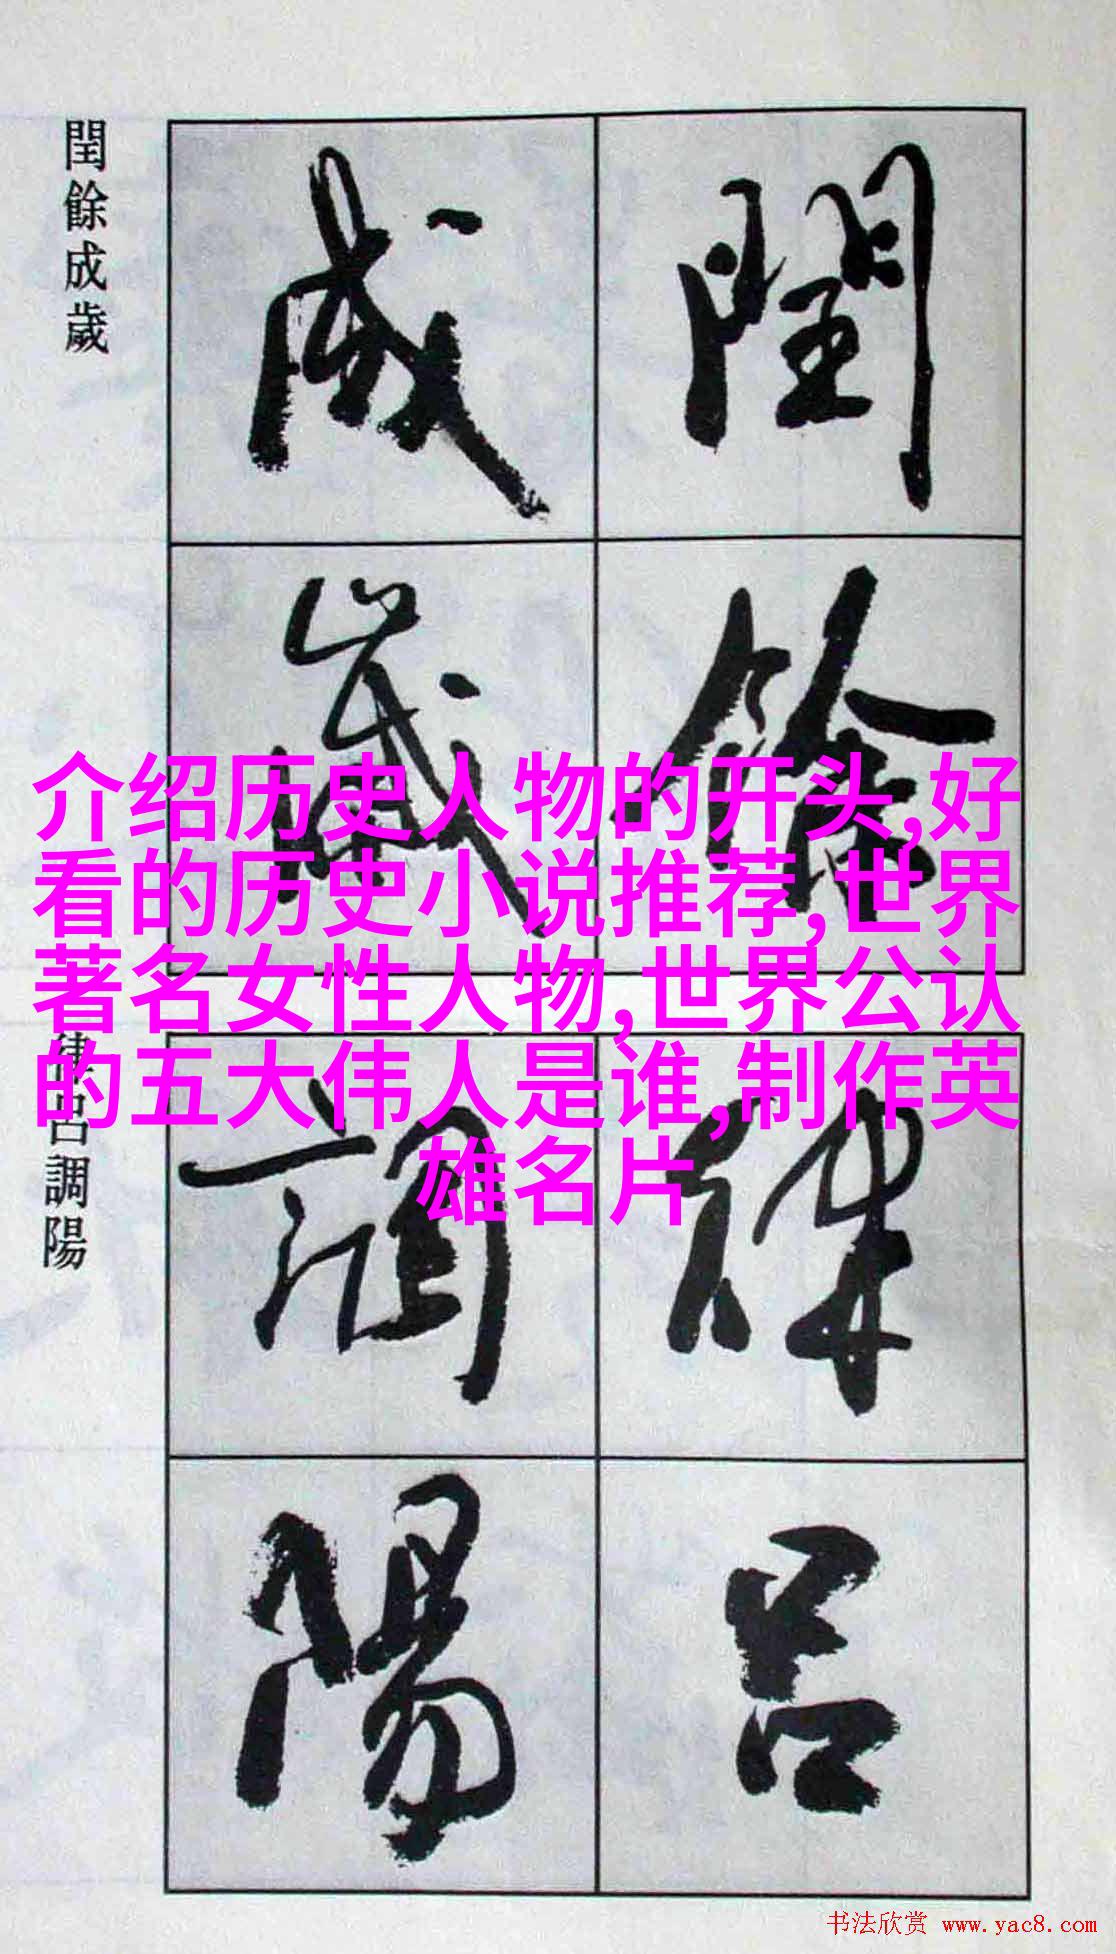 閏餘成歲
閏餘
成歲
介绍历史人物的开头,好
看的历史小说推荐,世界
著名女性人物,世界公认
的五大伟人是谁,制作英
雄名片
律呂調陽
律呂
調陽
书法欣赏 www.yac8.com